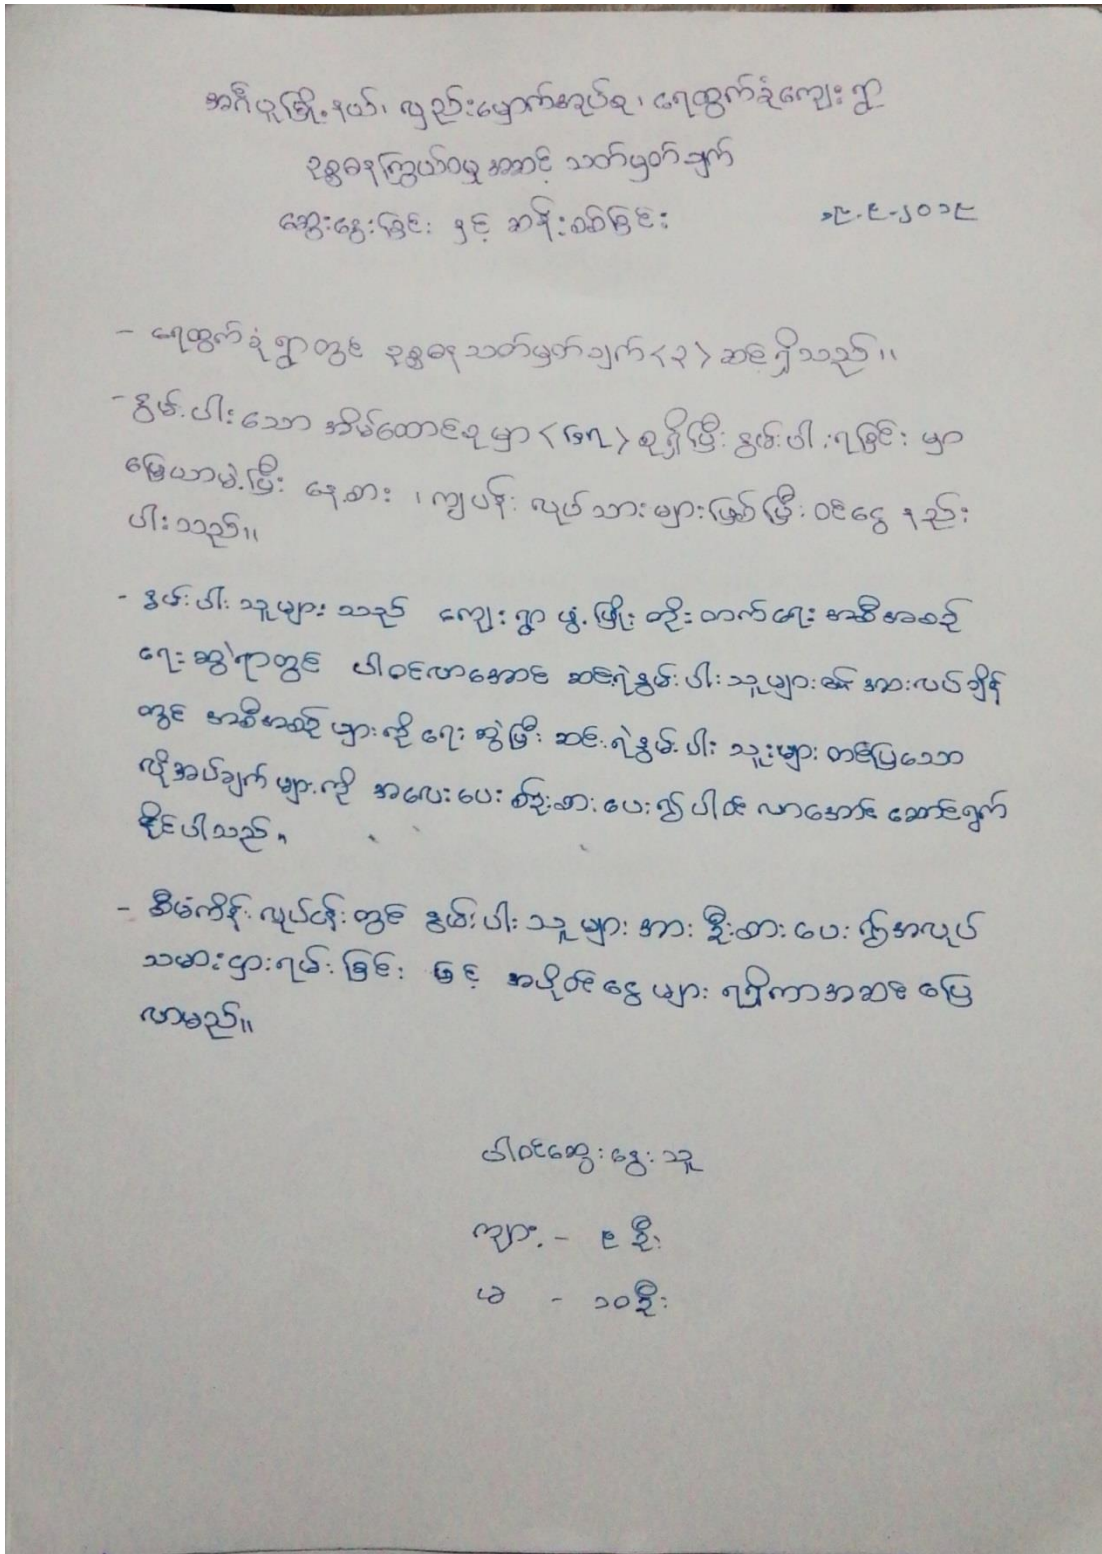 အင်္ဂပူမြို့နယ်၊ လှည်းမှောက်အုပ်စု၊ ရေထွက်ခုံကျေးရွာ
ဥစ္စဓနကြွယ်ဝမှုအဆင့် သတ်မှတ်ချက်
ဆွေးနွေးခြင်း နှင့် ဆန်းစစ်ခြင်း ၁၉.၉.၂၀၁၉
- ရေထွက်ခုံရွာတွင် ဥစ္စဓနသတ်မှတ်ချက် <၃> ဆင့်ရှိသည်။
- နွမ်းပါးသော အိမ်ထောင်စုမှာ စုရှိပြီး နွမ်းပါးရခြင်း မှာ
မြေယာမဲ့ပြီး နေ့စား ၊ ကျပန်း လုပ်သားများဖြစ်ပြီး ဝင်ငွေ နည်း
ပါးသည်။
- နွမ်းပါး သူများ သည် ကျေးရွာ ဖွံ့ဖြိုး တိုးတက်ရေး အစီအစဉ်
ရေးဆွဲရာတွင် ပါဝင်လာအောင် ဆင်းရဲနွမ်းပါးသူများ၏ အားလပ်ချိန်
တွင် အစီအစဉ်များကို ရေးဆွဲပြီး ဆင်းရဲနွမ်းပါး သူးများ တင်ပြသော
လိုအပ်ချက်များကို အလေးပေး စဉ်းစားပေး၍ ပါဝင် လာအောင် ဆောင်ရွက်
နိုင်ပါသည်။
- စီမံကိန်းလုပ်ငန်းတွင် နွမ်းပါးသူ များ အား ဦးစားပေး၍ အလုပ်
သမားငှားရမ်းခြင်း ဖြင့် အပိုဝင်ငွေ များ ရရှိကာ အဆင်ပြေ
လာမည်။
ပါဝင်ဆွေးနွေးသူ
ကျား - ၉ ဦး
မ - ၁၀ ဦး